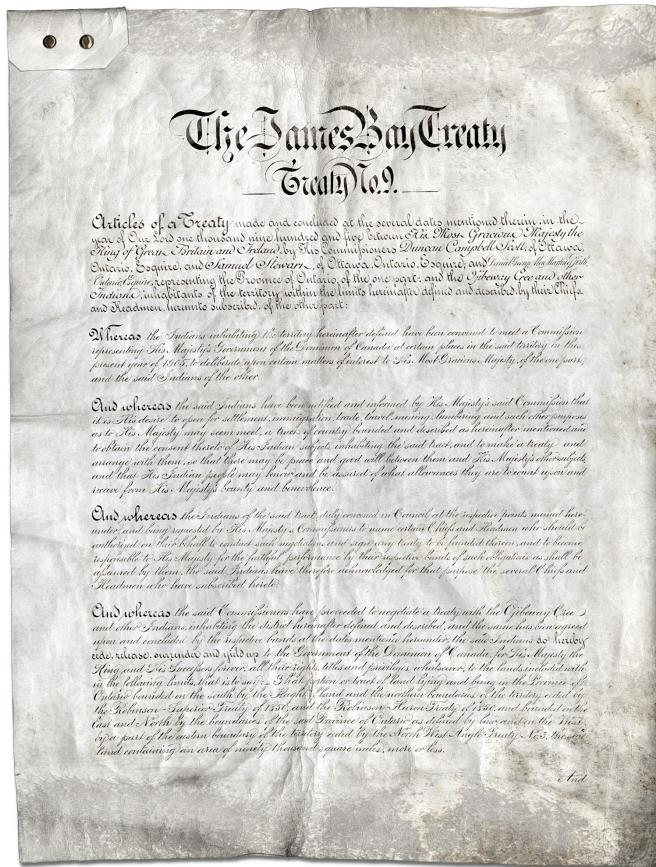 The James Bay Treaty
Treaty No. 9.
Articles of a Treaty made and concluded at the several dates mentioned therein, in the
year of Our Lord one thousand nine hundred and five between His Most Gracious Majesty the
King of Great Britain and Ireland, by His Commissioners Duncan Campbell Scott, of Ottawa,
Ontario, Esquire, and Samuel Stewart, of Ottawa, Ontario, Esquire; and Daniel George MacMartin, of Perth,
Ontario, Esquire, representing the Province of Ontario, of the one part; and the Ojibeway Cree and other
Indians, inhabitants of the territory within the limits hereinafter defined and described, by their Chiefs
and Headmen, hereunto subscribed, of the other part:
Whereas the Indians inhabiting the territory hereinafter defined have been convened to meet a Commission
representing His Majesty's Government of the Dominion of Canada at certain places in the said territory in this
present year of 1905, to deliberate upon certain matters of interest to His Most Gracious Majesty, of the one part,
and the said Indians of the other.
And whereas the said Indians have been notified and informed by His Majesty's said Commission that
it is His desire to open for settlement, immigration, trade, travel, mining, lumbering and such other purposes
as to His Majesty may seem meet, a tract of country bounded and described as hereinafter mentioned and
to obtain the consent thereto of His Indian subjects inhabiting the said tract, and to make a treaty and
arrange with them, so that there may be peace and good will between them and His Majesty's other subjects,
and that His Indian people may know and be assured of what allowances they are to count upon and
receive from His Majesty's bounty and benevolence.
And whereas the Indians of the said tract, duly convened in Council at the respective points named here-
under, and being requested by His Majesty's Commissioners to name certain Chiefs and Headmen who should be
authorized on their behalf to conduct such negotiations and sign any treaty to be founded thereon, and to become
responsible to His Majesty for the faithful performance by their respective bands of such obligations as shall be
assumed by them, the said Indians have therefore acknowledged for that purpose the several Chiefs and
Headmen who have subscribed hereto.
And whereas the said Commissioners have proceeded to negotiate a treaty with the Ojibeway Cree
and other Indians, inhabiting the district hereinafter defined and described, and the same has been agreed
upon and concluded by the respective bands at the dates mentioned hereunder, the said Indians do hereby
cede, release, surrender and yield up to the Government of the Dominion of Canada, for His Majesty the
King and His Successors forever, all their rights, titles and privileges whatsoever, to the lands included within
the following limits, that is to say:- That portion or tract of land lying and being in the Province of
Ontario bounded on the south by the Height of Land and the northern boundaries of the territory ceded by
the Robinson-Superior Treaty of 1850, and the Robinson-Huron Treaty of 1850, and bounded on the
East and North by the boundaries of the said Province of Ontario as defined by law, and on the West
by a part of the eastern boundary of the territory ceded by the North West Angle Treaty No. 3, the said
land containing an area of ninety thousand square miles, more or less.
And